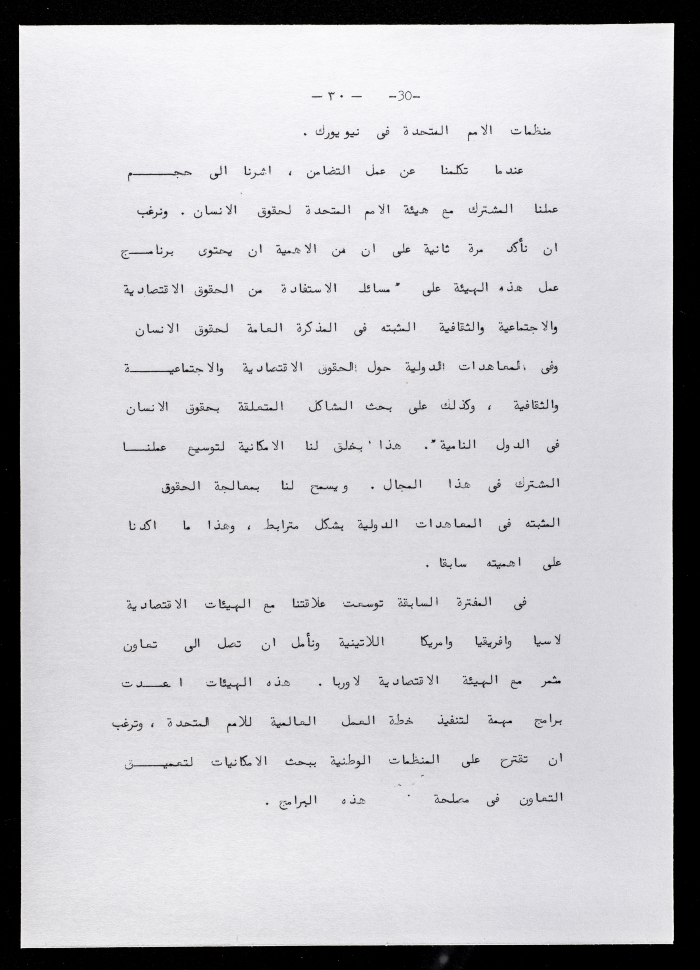 -30- — ٣٠ —
منظمات الامم المتحدة فى نيويورك .
عندما تكلمنا عن عمل التضامن ، اشرنا الى حجـــم
عملنا المشترك مع هيئة الامم المتحدة لحقوق الانسان . ونرغب
ان نأكد مرة ثانية على ان من الاهمية ان يحتوى برنامـــج
عمل هذه الهيئة على "مسائل الاستفادة من الحقوق الاقتصادية
والاجتماعية والثقافية المثبته فى المذكرة العامة لحقوق الانسان
وفى المعاهدات الدولية حول الحقوق الاقتصادية والاجتماعيـــة
والثقافية ، وكذلك على بحث المشاكل المتعلقة بحقوق الانسان
فى الدول النامية". هذا يخلق لنا الامكانية لتوسيع عملنـــا
المشترك فى هذا المجال . ويسمح لنا بمعالجة الحقوق
المثبته فى المعاهدات الدولية بشكل مترابط ، وهذا ما اكدنا
على اهميته سابقا .
فى المفترة السابقة توسعت علاقتنا مع الهيئات الاقتصادية
لاسيا وافريقيا وامريكا اللاتينية ونأمل ان تصل الى تعاون
مثمر مع الهيئة الاقتصادية لاوربا . هذه الهيئات اعـــدت
برامج مهمة لتنفيذ خطة العمل العالمية للأمم المتحدة ، وترغب
ان تقترح على المنظمات الوطنية ببحث الامكانيات لتعميـــق
التعاون فى مصلحة هذه البرامج .